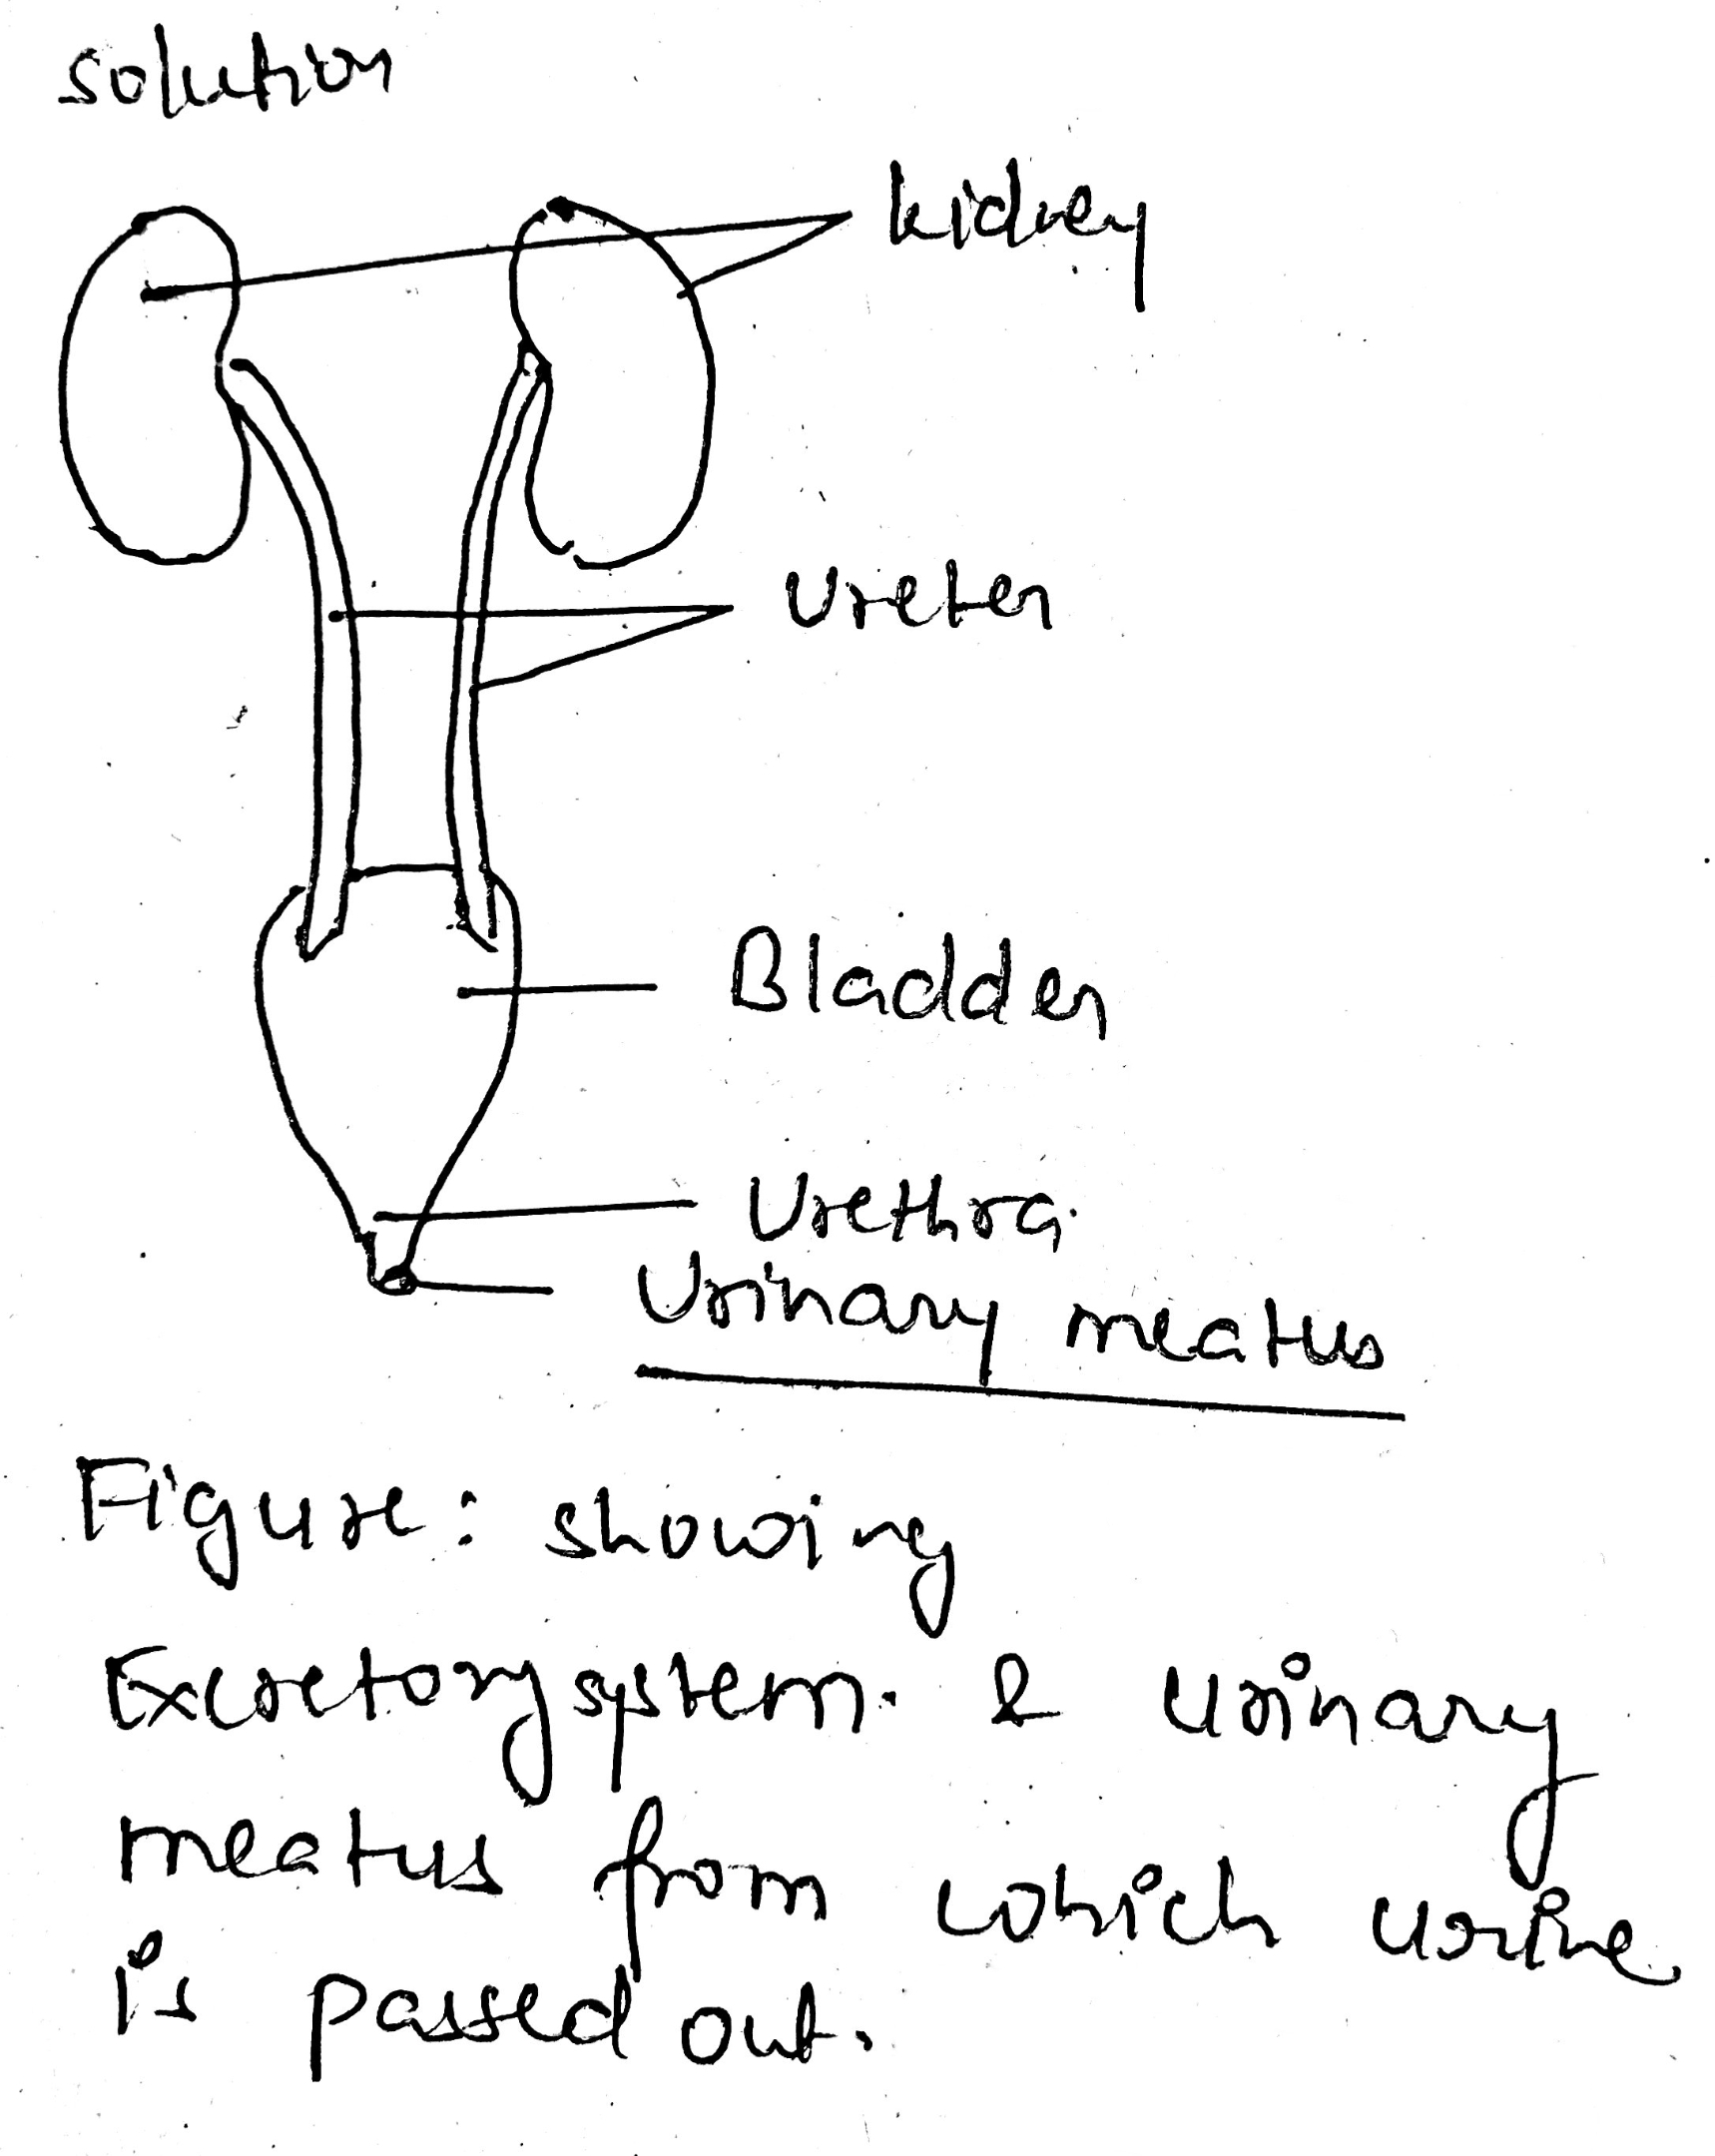 solution
kidney
Ureter
Bladder
Urethra.
Urinary meatus
Figure: showing
Excretory system. & urinary
meatus from which urine
is passed out.